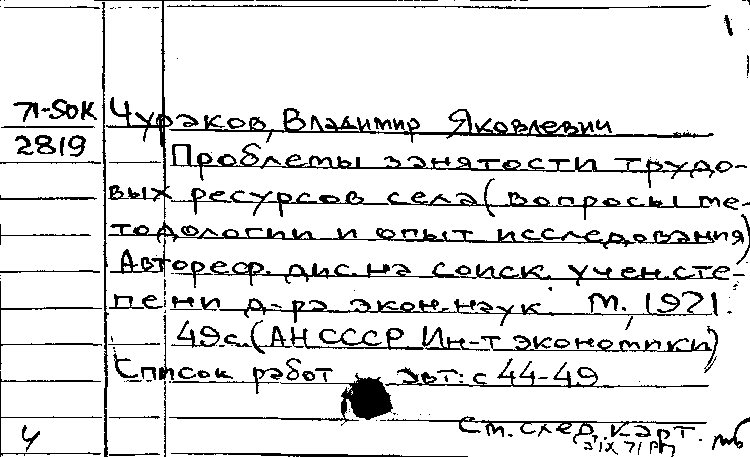 1
71-5ОК Чураков, Владимир Яковлевич
2819
Проблемы занятости трудо-
вых ресурсов села (вопросы ме-
тодологии и опыт исследования)
Автореф. дис. на соиск. учен. сте-
пени д-ра экон. наук. М., 1971.
49с. (АН СССР Ин-т экономики)
Список работ авт: с 44-49
См. след. карт.
Ч